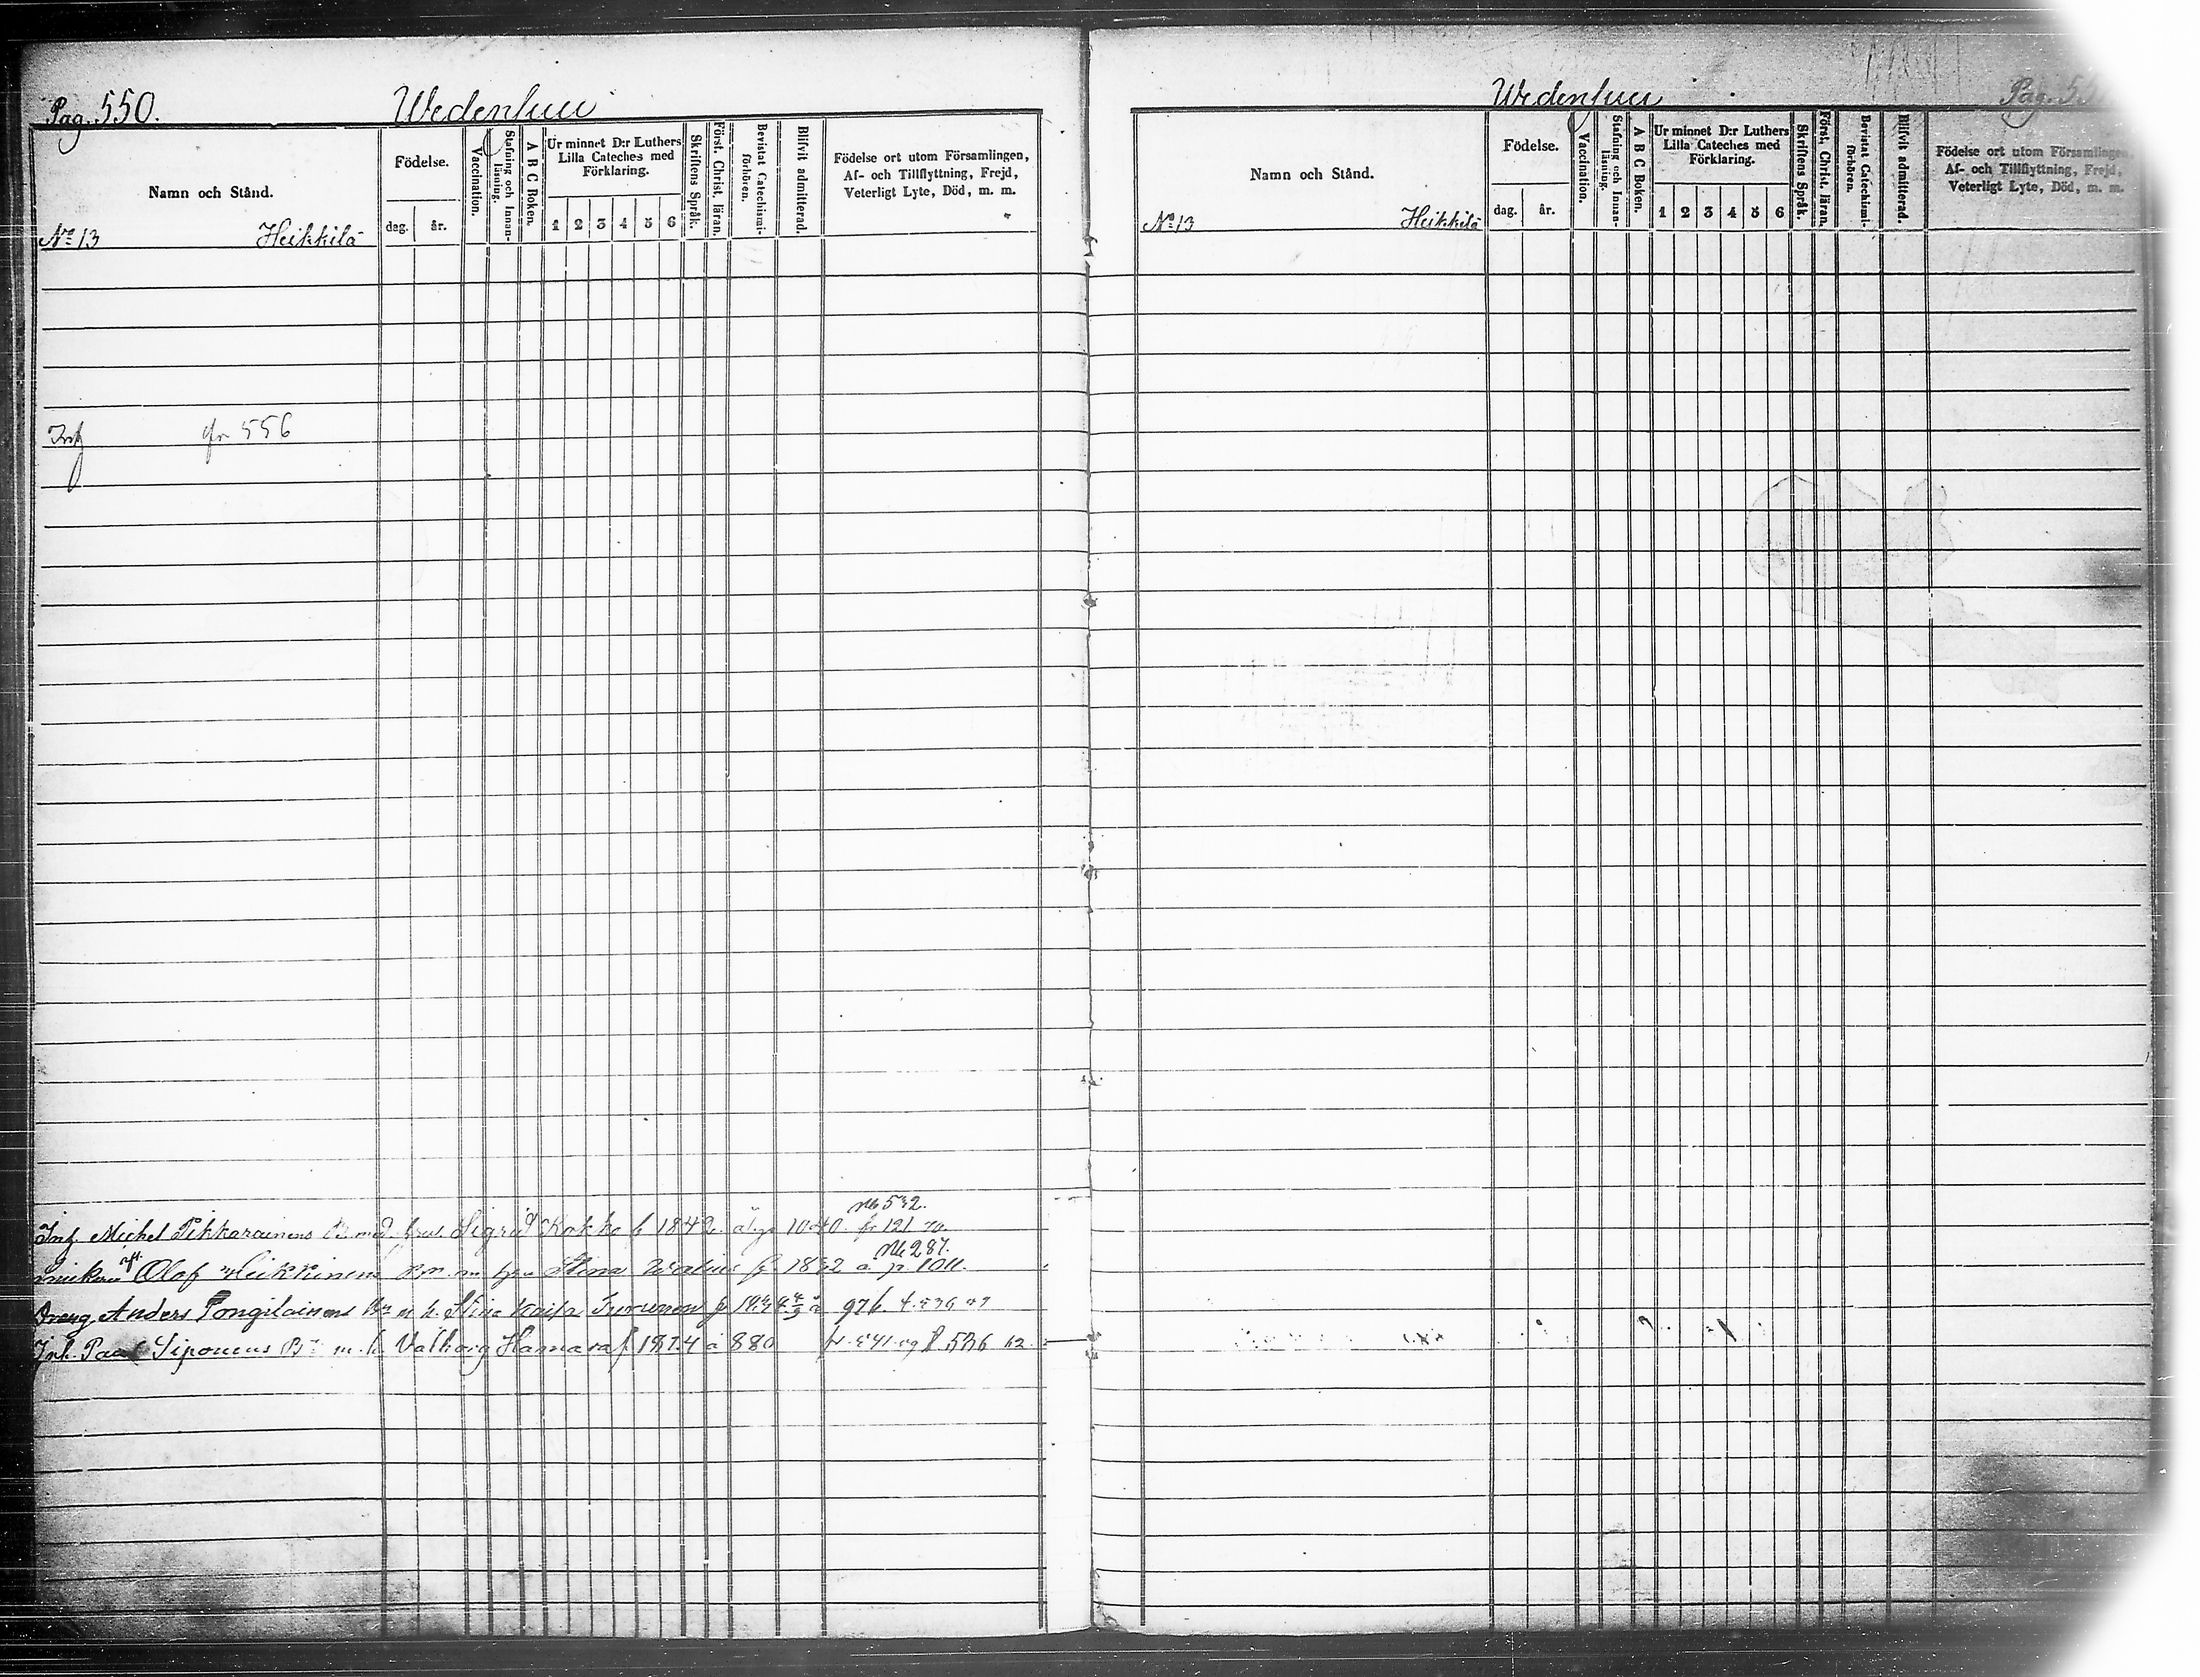 Pag. 550.
Wedensuu
Namn och Stånd.
Födelse.
dag. år.
Vaccination.
Stafning och Innan-läsning.
A B C Boken.
Ur minnet D:r Luthers
Lilla Cateches med
Förklaring.
1 2 3 4 5 6
Skriftens Språk.
Först. Christ. läran.
Bevistat Catechismi-förhören.
Blifvit admitterad.
Födelse ort utom Församlingen,
Af- och Tillflyttning, Frejd,
Veterligt Lyte, Död, m. m.
No 13 Heikkilä
fr 556
No 532.
Inh. Michel Pikkarainens med Sigrid Kokko f 1842 1040. fr 121
No 287.
Olof Heikkinens Stina f 1832 a p 1011.
Dreng Anders Pongilainens Stina Kaisa 976.
Inh. Paul Siponens m. h. Valborg Hamara f 1874 a 880 536
Wedensuu
Namn och Stånd.
Födelse.
dag. år.
Vaccination.
Stafning och Innan-läsning.
A B C Boken.
Ur minnet D:r Luthers
Lilla Cateches med
Förklaring.
1 2 3 4 5 6
Skriftens Språk.
Först. Christ. läran.
Bevistat Catechismi-förhören.
Blifvit admitterad.
Födelse ort utom Församlingen,
Af- och Tillflyttning, Frejd,
Veterligt Lyte, Död, m. m.
No 13 Heikkilä